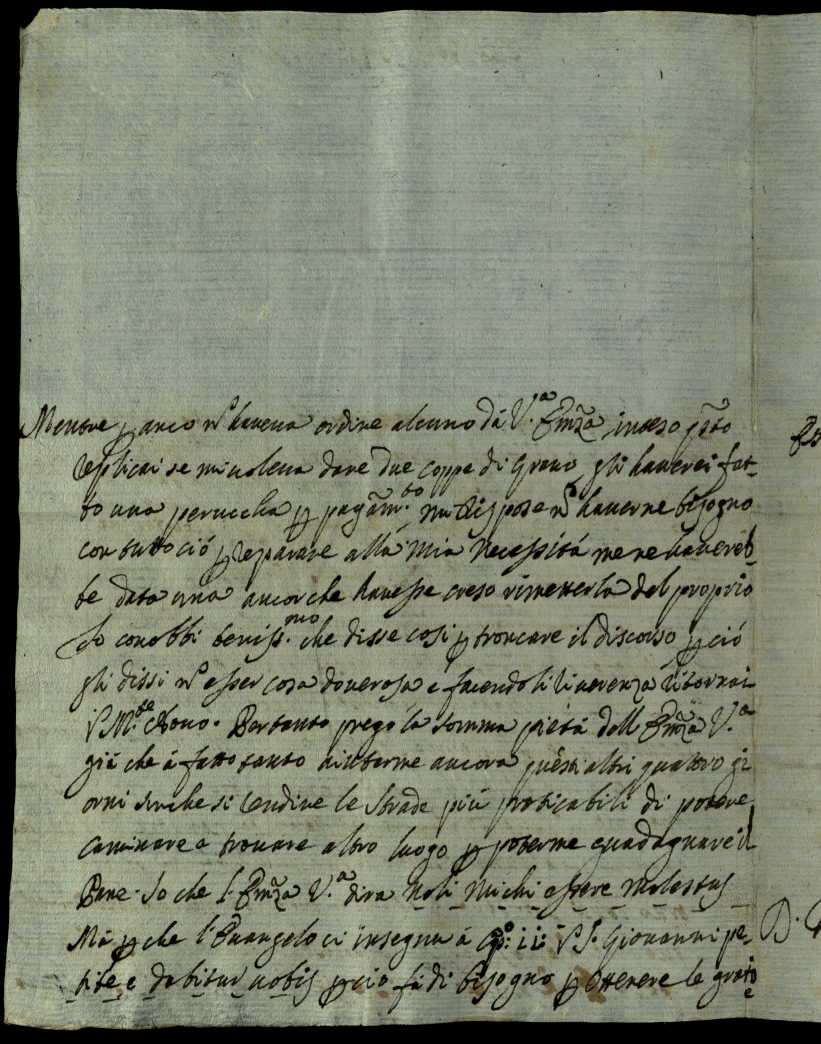 Mentre p anco nõ haveva ordine alcuno dà V.ª Emẽza inteso q̃sto
replicai se mi voleva dare due coppe di grano, gli haverei fat-
to una perucha p pagam.to mi rispose nõ haverne bisogno
con tutto ciò p reparare alla mia necessità me ne havereb-
be data una ancor che havesse creso rimetterla del proprio
Io conobbi beniss.mo che disse così p troncare il discorso p ciò
gli dissi nõ esser cosa doverosa e facendoli riverenza ritornai
Pertanto prego la somma pietà dell Emẽza V.ª
già che à fatto tanto aiutarme ancora questi altri quattro gi
orni sin che si rendine le strade più praticabili di potere
caminare a trovare altro luogo p poterme guadagnare il
Pane. So che l'Emẽza V.ª dira noli michi essere molestus
Mà p che l'Evangelo ci insegna à Cp̃o: ii: S. Giovanni pe-
tite, e dabitur vobis p ciò fà di bisogno p ottenere le gratie